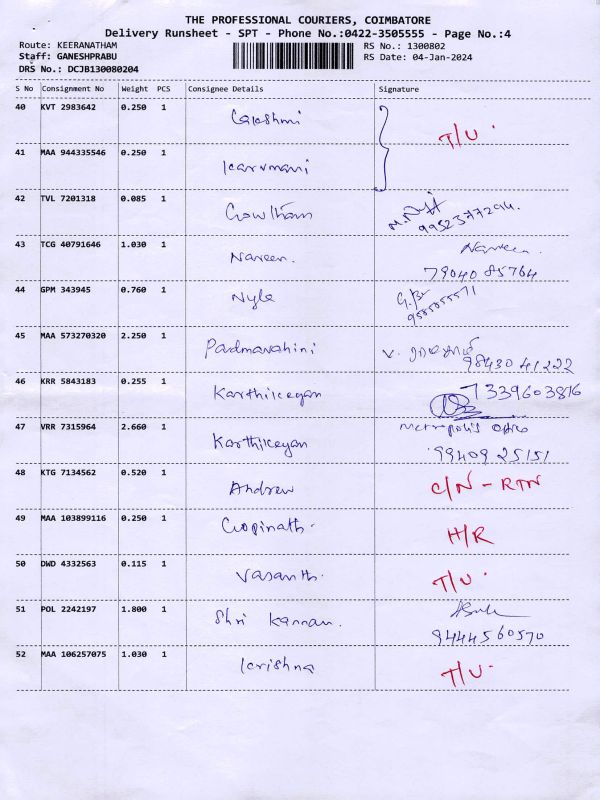 THE PROFESSIONAL COURIERS, COIMBATORE
Delivery Runsheet - SPT - Phone No.:0422-3505555 - Page No.:4
Route: KEERANATHAM
RS No.: 1300802
Staff: GANESHPRABU
RS Date: 04-Jan-2024
DRS No.: DCJB130080204
S No Consignment No Weight PCS Consignee Details Signature
40 KVT 2983642 0.250 1 Lakshmi T/U.
41 MAA 944335546 0.250 1 Karumani
42 TVL 7201318 0.085 1 Gowtham
9952377294.
43 TCG 40791646 1.030 1 Naveen. Naveen.
79040 85764
44 GPM 343945 0.760 1 Nyle
45 MAA 573270320 2.250 1 Padmavahini V.
98430 41222
46 KRR 5843183 0.255 1 Karthikeyan 7339603876
47 VRR 7315964 2.660 1 Karthikeyan Metropolis Office
99409 25151
48 KTG 7134562 0.520 1 Andrew C/N - RTN
49 MAA 103899116 0.250 1 Gopinath. H/R
50 DWD 4332563 0.115 1 Vasanth. T/U.
51 POL 2242197 1.800 1 Shri Kannan.
9444560570
52 MAA 106257075 1.030 1 Krishna T/U.